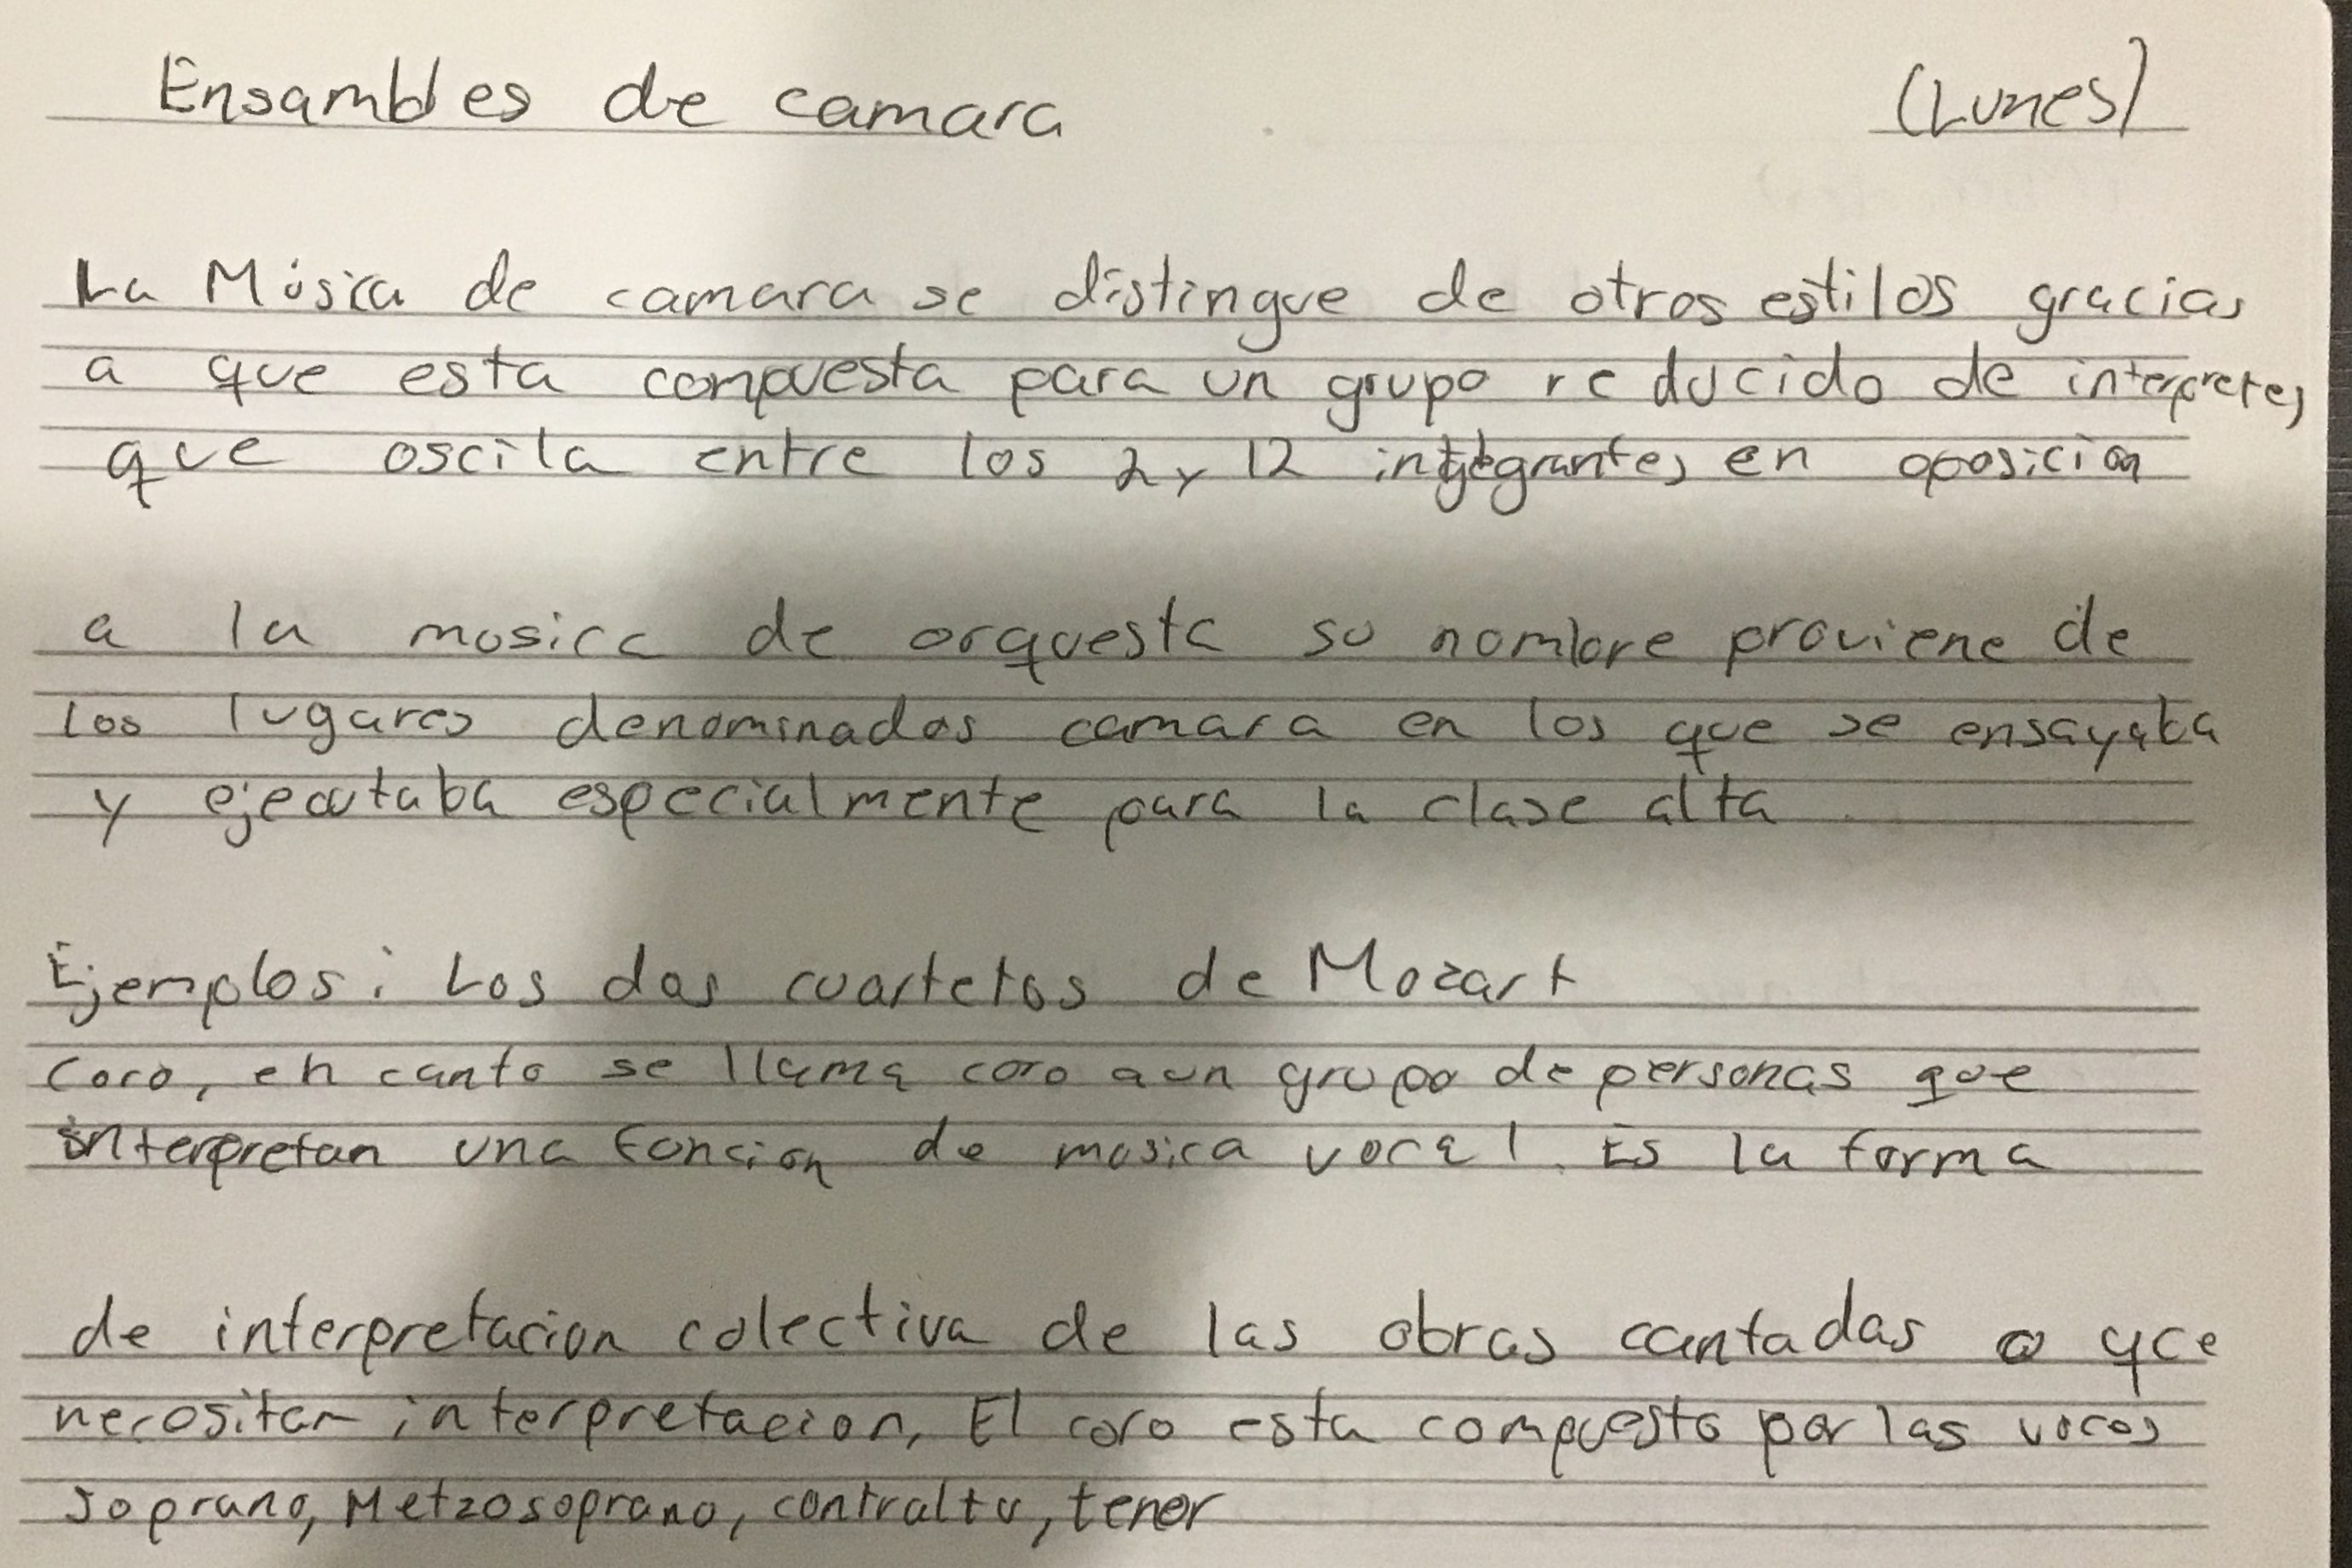 Ensambles de camara (Lunes)
La Música de camara se distingue de otros estilos gracias
a que esta compuesta para un grupo reducido de interpretes
que oscila entre los 2 y 12 integrantes en oposicion
a la musica de orquesta su nombre proviene de
los lugares denominados camara en los que se ensayaba
y ejecutaba especialmente para la clase alta
Ejemplos: Los dos cuartetos de Mozart
Coro, en canto se llama coro a un grupo de personas que
interpretan una foncion de musica vocal. Es la forma
de interpretacion colectiva de las obras cantadas o que
necesitan interpretacion, El coro esta compuesto por las voces
soprano, Metzosoprano, contralto, tenor